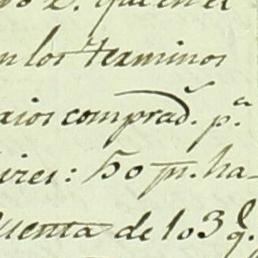 que en el
n los terminos
arios comprad.^s p.^a
ires: 50 p.^s ha-
uenta de los 3 q.^l